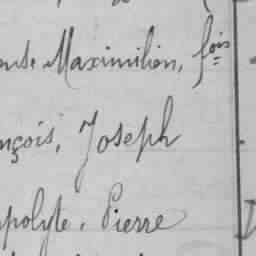 Maximilien, fois
nçois, Joseph
ppolyte, Pierre